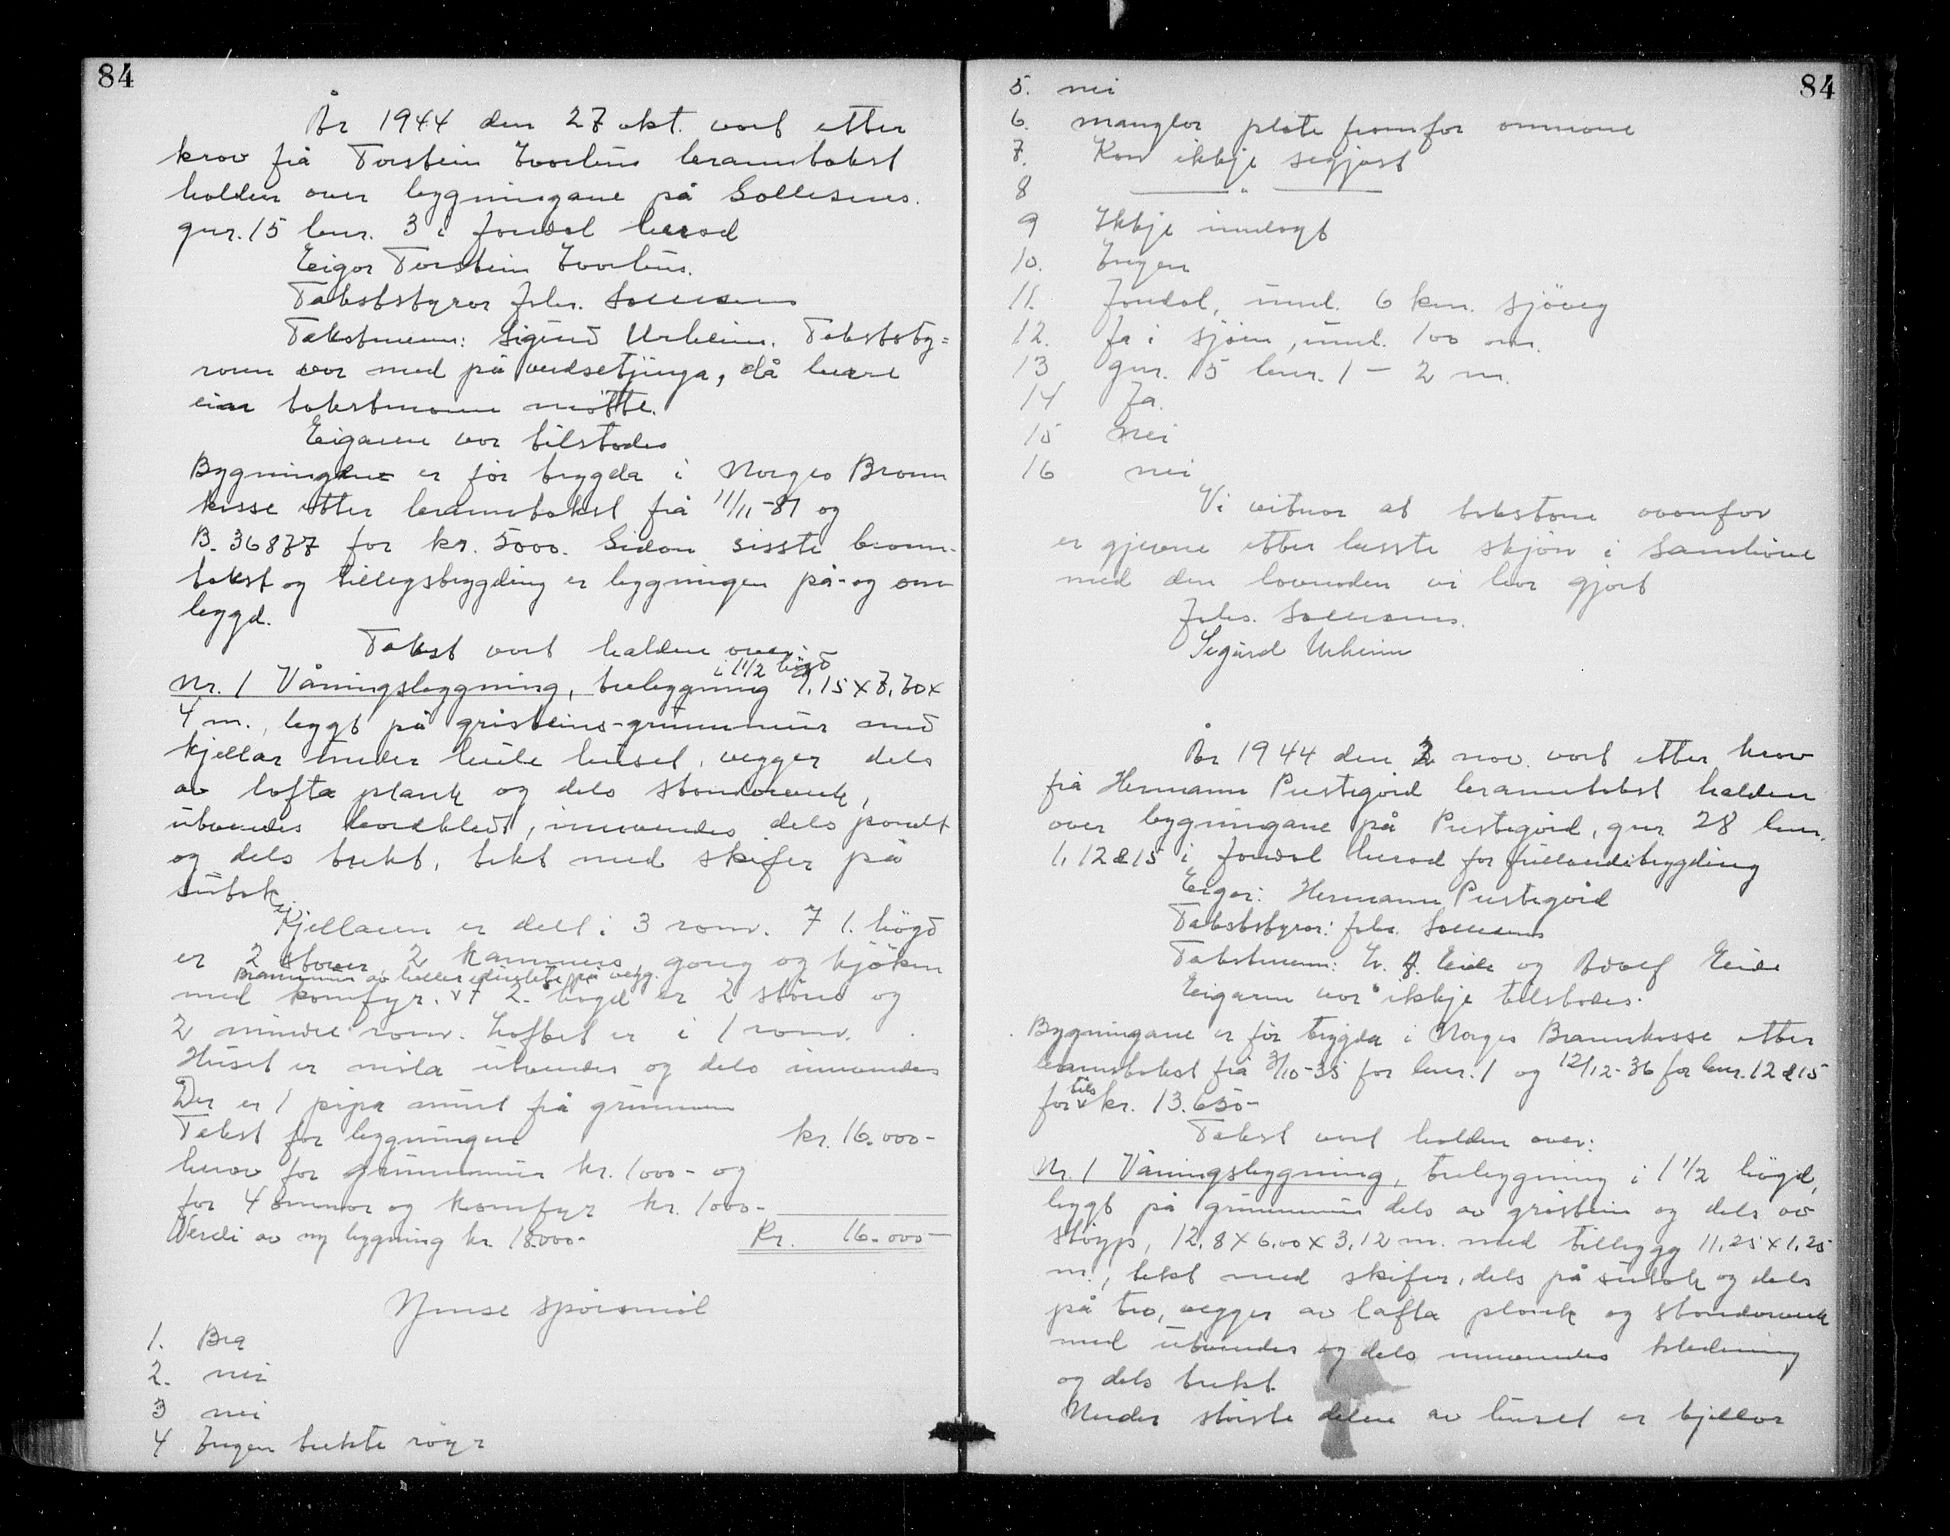 84
År 1944 den 27 okt. vart etter
krav frå Torstein Ivarhus branntakst
halden over bygningane på Sollesnes.
gnr. 15 bnr. 3 i Jondal herad
Eigar Torstein Ivarhus.
Takststyrar Johs. Sollesnes
Takstmenn: Sigurd Urheim. Takststy=
raren var med på verdsetjinga, då berre
ein takstmann møtte.
Eigaren var tilstades
Bygningane er før trygda i Norges Brann
kasse etter branntakst frå 11/11-37 og
B. 36877 for kr. 5000. Sidan sisste brann-
takst og tillegstrygding er bygningen på- og om
bygd.
Takst vart halden over:
i 1 1/2 høgd
Nr. 1 Våningsbygning, trebygning 9,15 x 7,70 x
4 m., bygt på gråsteins-grunnmur med
kjellar under heile huset, vegger dels
av lafta plank og dels standarverk,
utvendes bordkledt, innvendes dels panelt
og dels trekt, tekt med skifer på
sutak
Kjellaren er delt i 3 rom. I 1. høgd
er 2 stover, 2 kammers, gang og kjøken
Brannmur av heller, einslete på vegg.
med komfyr. I 2. høgd er 2 større og
2 mindre rom. Loftet er i 1 rom.
Huset er måla utvendes og dels innvendes
Der er 1 pipa murt frå grunnen
Takst for bygningen kr. 16.000-
herav for grunnmur kr. 1000- og
for 4 omnar og komfyr kr. 1000-
Verdi av ny bygning kr. 18000- Kr. 16.000-
Ymse spørsmål
1. Bra
2. nei
3 nei
4 Ingen trekte røyr
84
5. nei
6. manglar plate framfor omnane
7. Kan ikkje segjast
8 — " —
9 Ikkje innlagt
10. Ingen
11. Jondal, uml. 6 km. sjøveg
12. Ja i sjøen, uml. 100 m.
13 gnr. 15 bnr. 1 - 2 m.
14 Ja.
15 nei
16 nei
Vi vitnar at takstane ovanfor
er gjevne etter beste skjøn i samhøve
med den lovnaden vi har gjort
Johs. Sollesnes.
Sigurd Urheim
År 1944 den 2 nov. vart etter krav
frå Hermann Prestegård branntakst halden
over bygningane på Prestegård, gnr 28 bnr.
1, 12 & 15 i Jondal herad for fullverditrygding
Eigar: Hermann Prestegård
Takststyrar: Johs. Sollesnes
Takstmenn: L. J. Eide og Adolf Eide
Eigaren var ikkje tilstades.
Bygningane er før trygda i Norges Brannkasse etter
branntakst frå 3/10-35 for bnr. 1 og 12/12-36 for bnr. 12 & 15
for tils kr. 13.650-
Takst vart halden over:
Nr. 1 Våningsbygning, trebygning i 1 1/2 høgd,
bygt på grunnmur dels av gråstein og dels av
støyp, 12,8 x 6,00 x 3,12 m. med tilbygg 11,25 x 1,25
m., tekt med skifer, dels på sutak og dels
på tro, vegger av lafta plank og standarverk
med utvendes og dels innvendes kledning
og dels trekt.
Under største delen av huset er kjellar